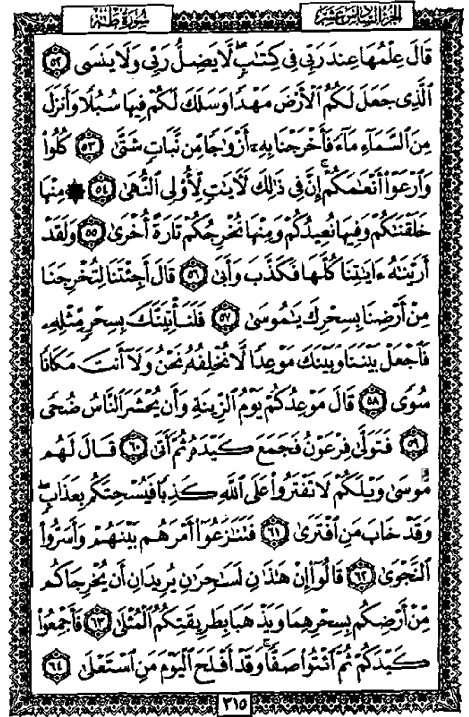 الجزء السادس عشر
سورة طه
قَالَ عِلْمُهَا عِندَ رَبِّى فِى كِتَٰبٍ لَّا يَضِلُّ رَبِّى وَلَا يَنسَى ٥٢
ٱلَّذِى جَعَلَ لَكُمُ ٱلْأَرْضَ مَهْدًا وَسَلَكَ لَكُمْ فِيهَا سُبُلًا وَأَنزَلَ
مِنَ ٱلسَّمَآءِ مَآءً فَأَخْرَجْنَا بِهِۦٓ أَزْوَٰجًا مِّن نَّبَاتٍ شَتَّىٰ ٥٣ كُلُوا۟
وَٱرْعَوْا۟ أَنْعَٰمَكُمْ إِنَّ فِى ذَٰلِكَ لَءَايَٰتٍ لِّأُو۟لِى ٱلنُّهَىٰ ٥٤ ۞ مِنْهَا
خَلَقْنَٰكُمْ وَفِيهَا نُعِيدُكُمْ وَمِنْهَا نُخْرِجُكُمْ تَارَةً أُخْرَىٰ ٥٥ وَلَقَدْ
أَرَيْنَٰهُ ءَايَٰتِنَا كُلَّهَا فَكَذَّبَ وَأَبَىٰ ٥٦ قَالَ أَجِئْتَنَا لِتُخْرِجَنَا
مِنْ أَرْضِنَا بِسِحْرِكَ يَٰمُوسَىٰ ٥٧ فَلَنَأْتِيَنَّكَ بِسِحْرٍ مِّثْلِهِۦ
فَٱجْعَلْ بَيْنَنَا وَبَيْنَكَ مَوْعِدًا لَّا نُخْلِفُهُۥ نَحْنُ وَلَآ أَنتَ مَكَانًا
سُوًى ٥٨ قَالَ مَوْعِدُكُمْ يَوْمُ ٱلزِّينَةِ وَأَن يُحْشَرَ ٱلنَّاسُ ضُحًى
٥٩ فَتَوَلَّىٰ فِرْعَوْنُ فَجَمَعَ كَيْدَهُۥ ثُمَّ أَتَىٰ ٦٠ قَالَ لَهُم
مُّوسَىٰ وَيْلَكُمْ لَا تَفْتَرُوا۟ عَلَى ٱللَّهِ كَذِبًا فَيُسْحِتَكُم بِعَذَابٍ
وَقَدْ خَابَ مَنِ ٱفْتَرَىٰ ٦١ فَتَنَٰزَعُوٓا۟ أَمْرَهُم بَيْنَهُمْ وَأَسَرُّوا۟
ٱلنَّجْوَىٰ ٦٢ قَالُوٓا۟ إِنْ هَٰذَٰنِ لَسَٰحِرَٰنِ يُرِيدَانِ أَن يُخْرِجَاكُم
مِّنْ أَرْضِكُم بِسِحْرِهِمَا وَيَذْهَبَا بِطَرِيقَتِكُمُ ٱلْمُثْلَىٰ ٦٣ فَأَجْمِعُوا۟
كَيْدَكُمْ ثُمَّ ٱئْتُوا۟ صَفًّا وَقَدْ أَفْلَحَ ٱلْيَوْمَ مَنِ ٱسْتَعْلَىٰ ٦٤
٣١٥